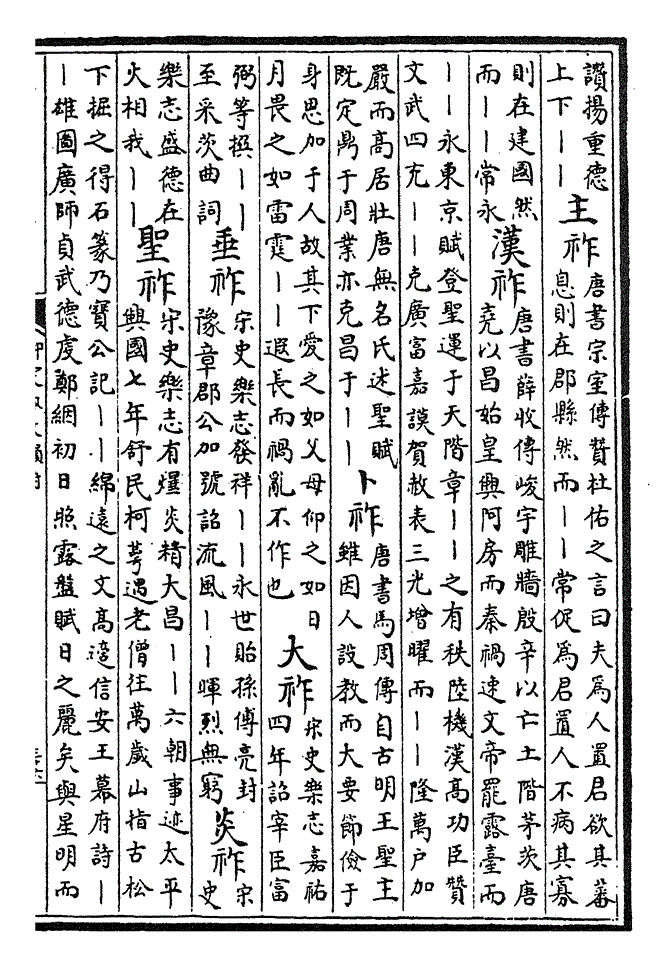 讚揚重德
上下丨丨
主祚
唐書宗室傳贊杜佑之言曰夫為人置君欲其蕃
息則在郡縣然而丨丨常促為君置人不病其寡
則在建國然
而丨丨常永
漢祚
唐書薛收傳峻宇雕牆殷辛以亡土階茅茨唐
堯以昌始皇興阿房而秦禍速文帝罷露臺而
丨丨永東京賦登聖運于天階章丨丨之有秩陸機漢高功臣贊
文武四充丨丨克廣富嘉謨賀赦表三光增曜而丨丨隆萬户加
嚴而高居壯唐無名氏述聖賦
既定鼎于周業亦克昌于丨丨
卜祚
唐書馬周傳自古明王聖主
雖因人設教而大要節儉于
身思加于人故其下愛之如父母仰之如日
月畏之如雷霆丨丨遐長而禍亂不作也
大祚
宋史樂志嘉祐
四年詔宰臣富
弼等撰丨丨
至采茨曲詞
垂祚
宋史樂志發祥丨丨永世貽孫傅亮封
豫章郡公加號詔流風丨丨暉烈無窮
炎祚
宋
史
樂志盛德在
火相我丨丨
聖祚
宋史樂志有爗炎精大昌丨丨六朝事迹太平
興國七年舒民柯萼遇老僧往萬歲山指古松
下掘之得石篆乃寶公記丨丨綿遠之文高適信安王幕府詩丨
丨雄圖廣師貞武德虔鄭絪初日照露盤賦日之麗矣與星明而